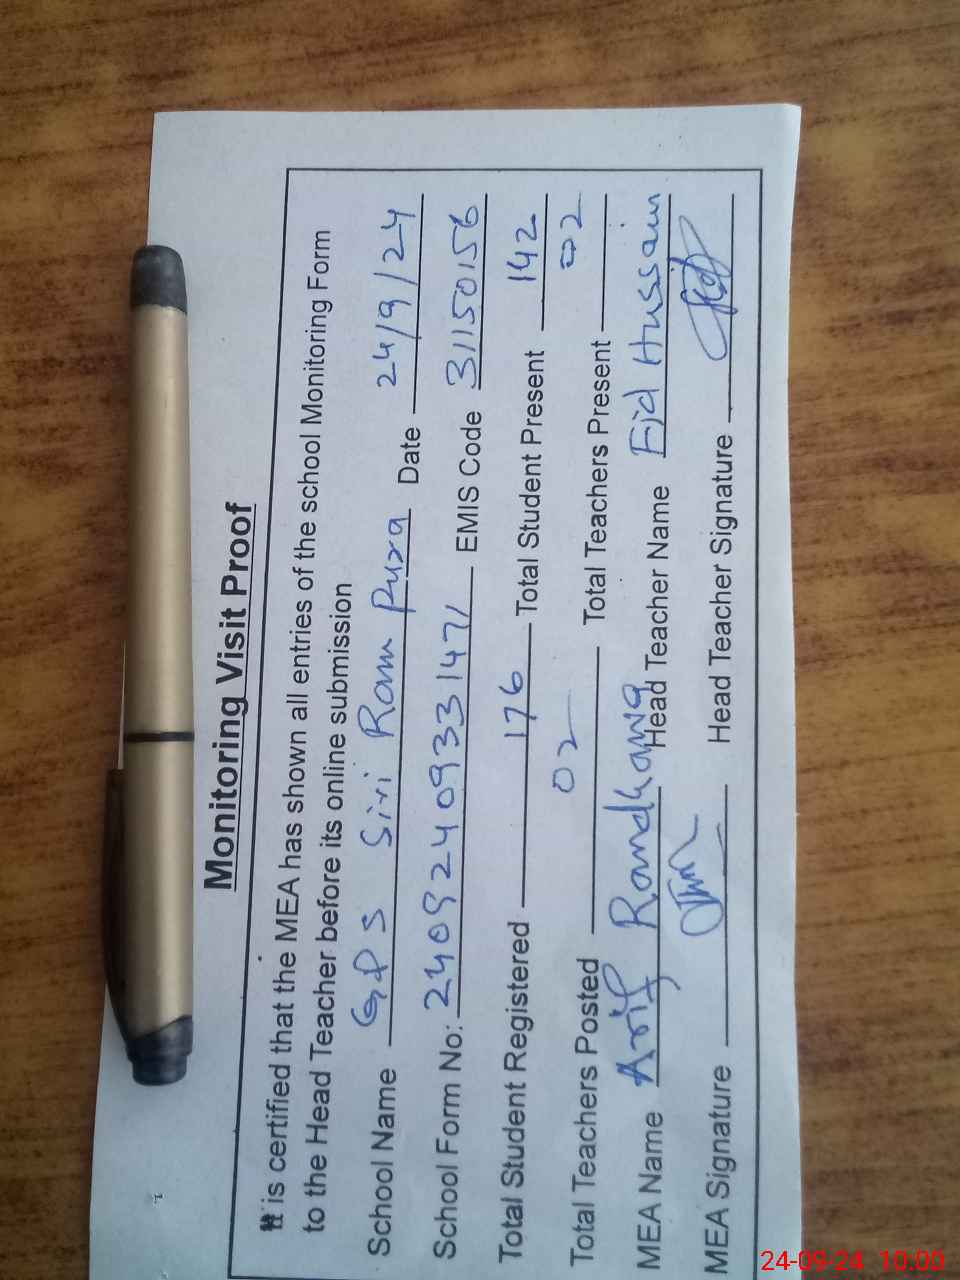 Monitoring Visit Proof
It is certified that the MEA has shown all entries of the school Monitoring Form
to the Head Teacher before its online submission
School Name GPS Siri Ram Pura Date 24/9/24
School Form No: 24092409331471 EMIS Code 31150156
Total Student Registered 176 Total Student Present 142
Total Teachers Posted 02 Total Teachers Present 02
MEA Name Arif Randhawa Head Teacher Name Fid Hussain
MEA Signature Head Teacher Signature
24-09-24 10:00